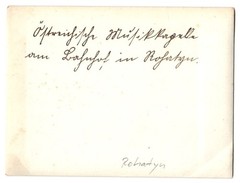 Östreichische Musikkapelle
am Bahnhof in Rohatyn.
Rohatyn